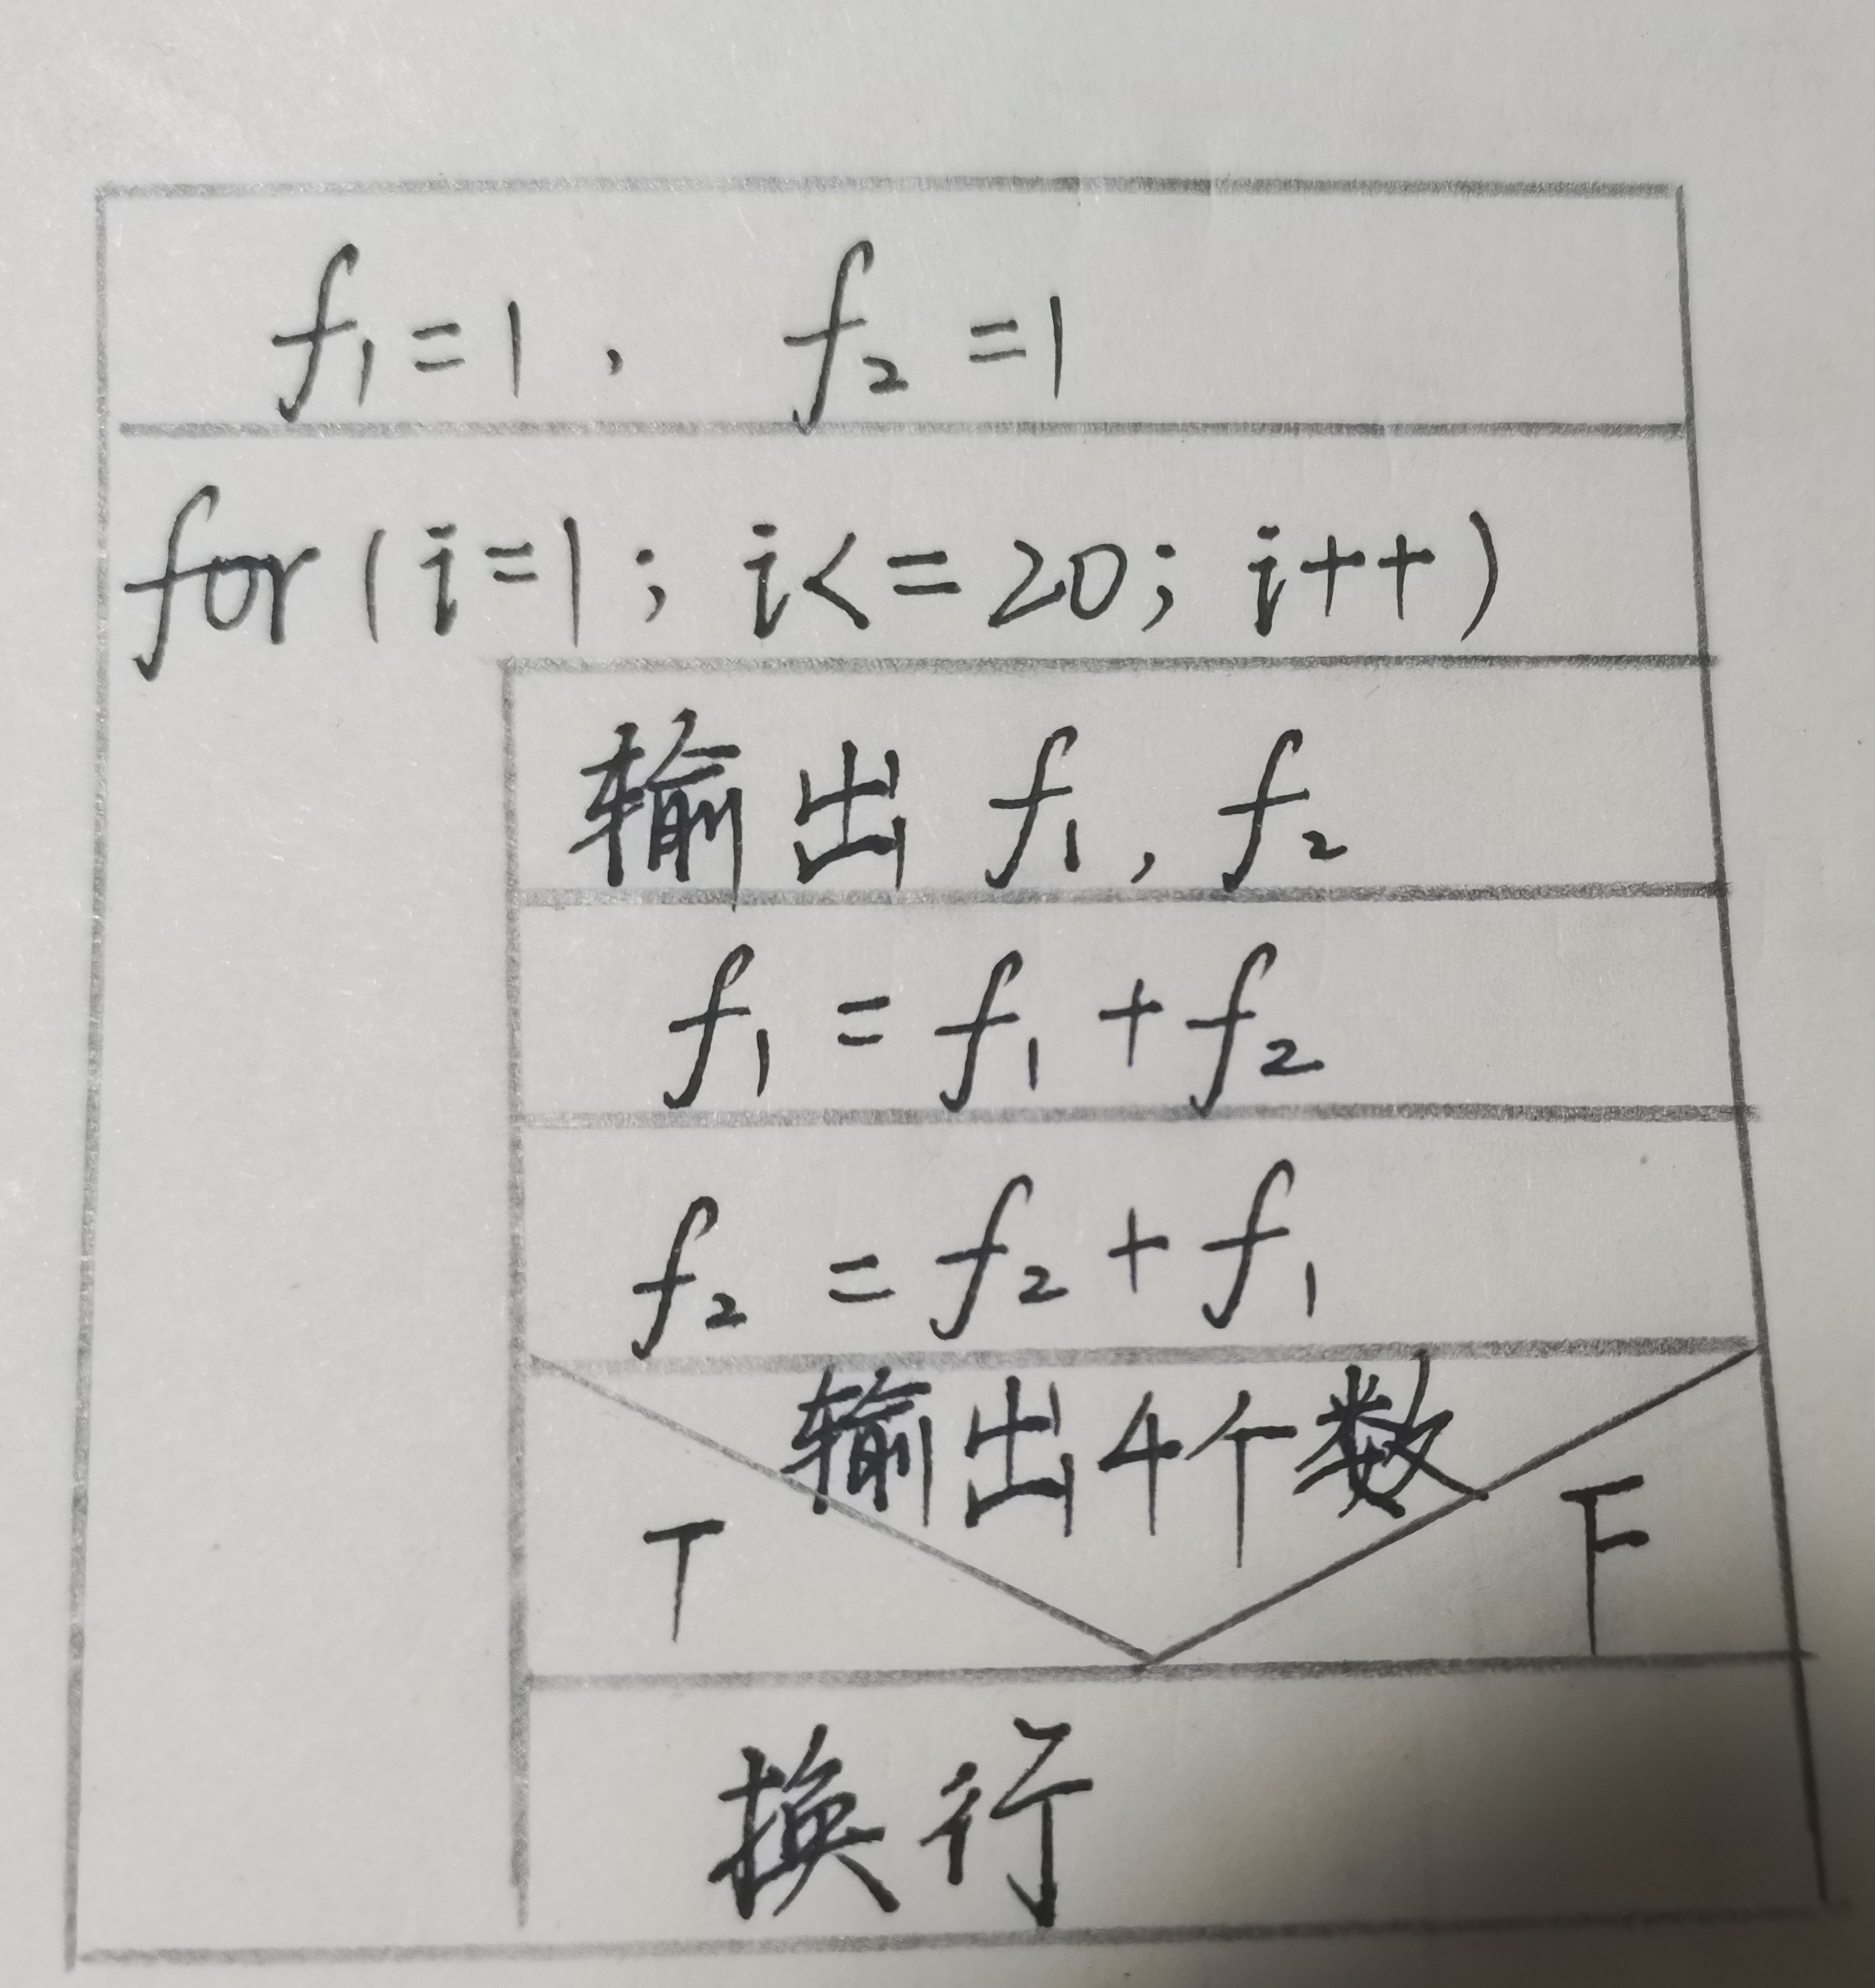 f₁=1, f₂=1
for(i=1; i<=20; i++)
输出 f₁, f₂
f₁ = f₁ + f₂
f₂ = f₂ + f₁
输出4个数
T F
换行